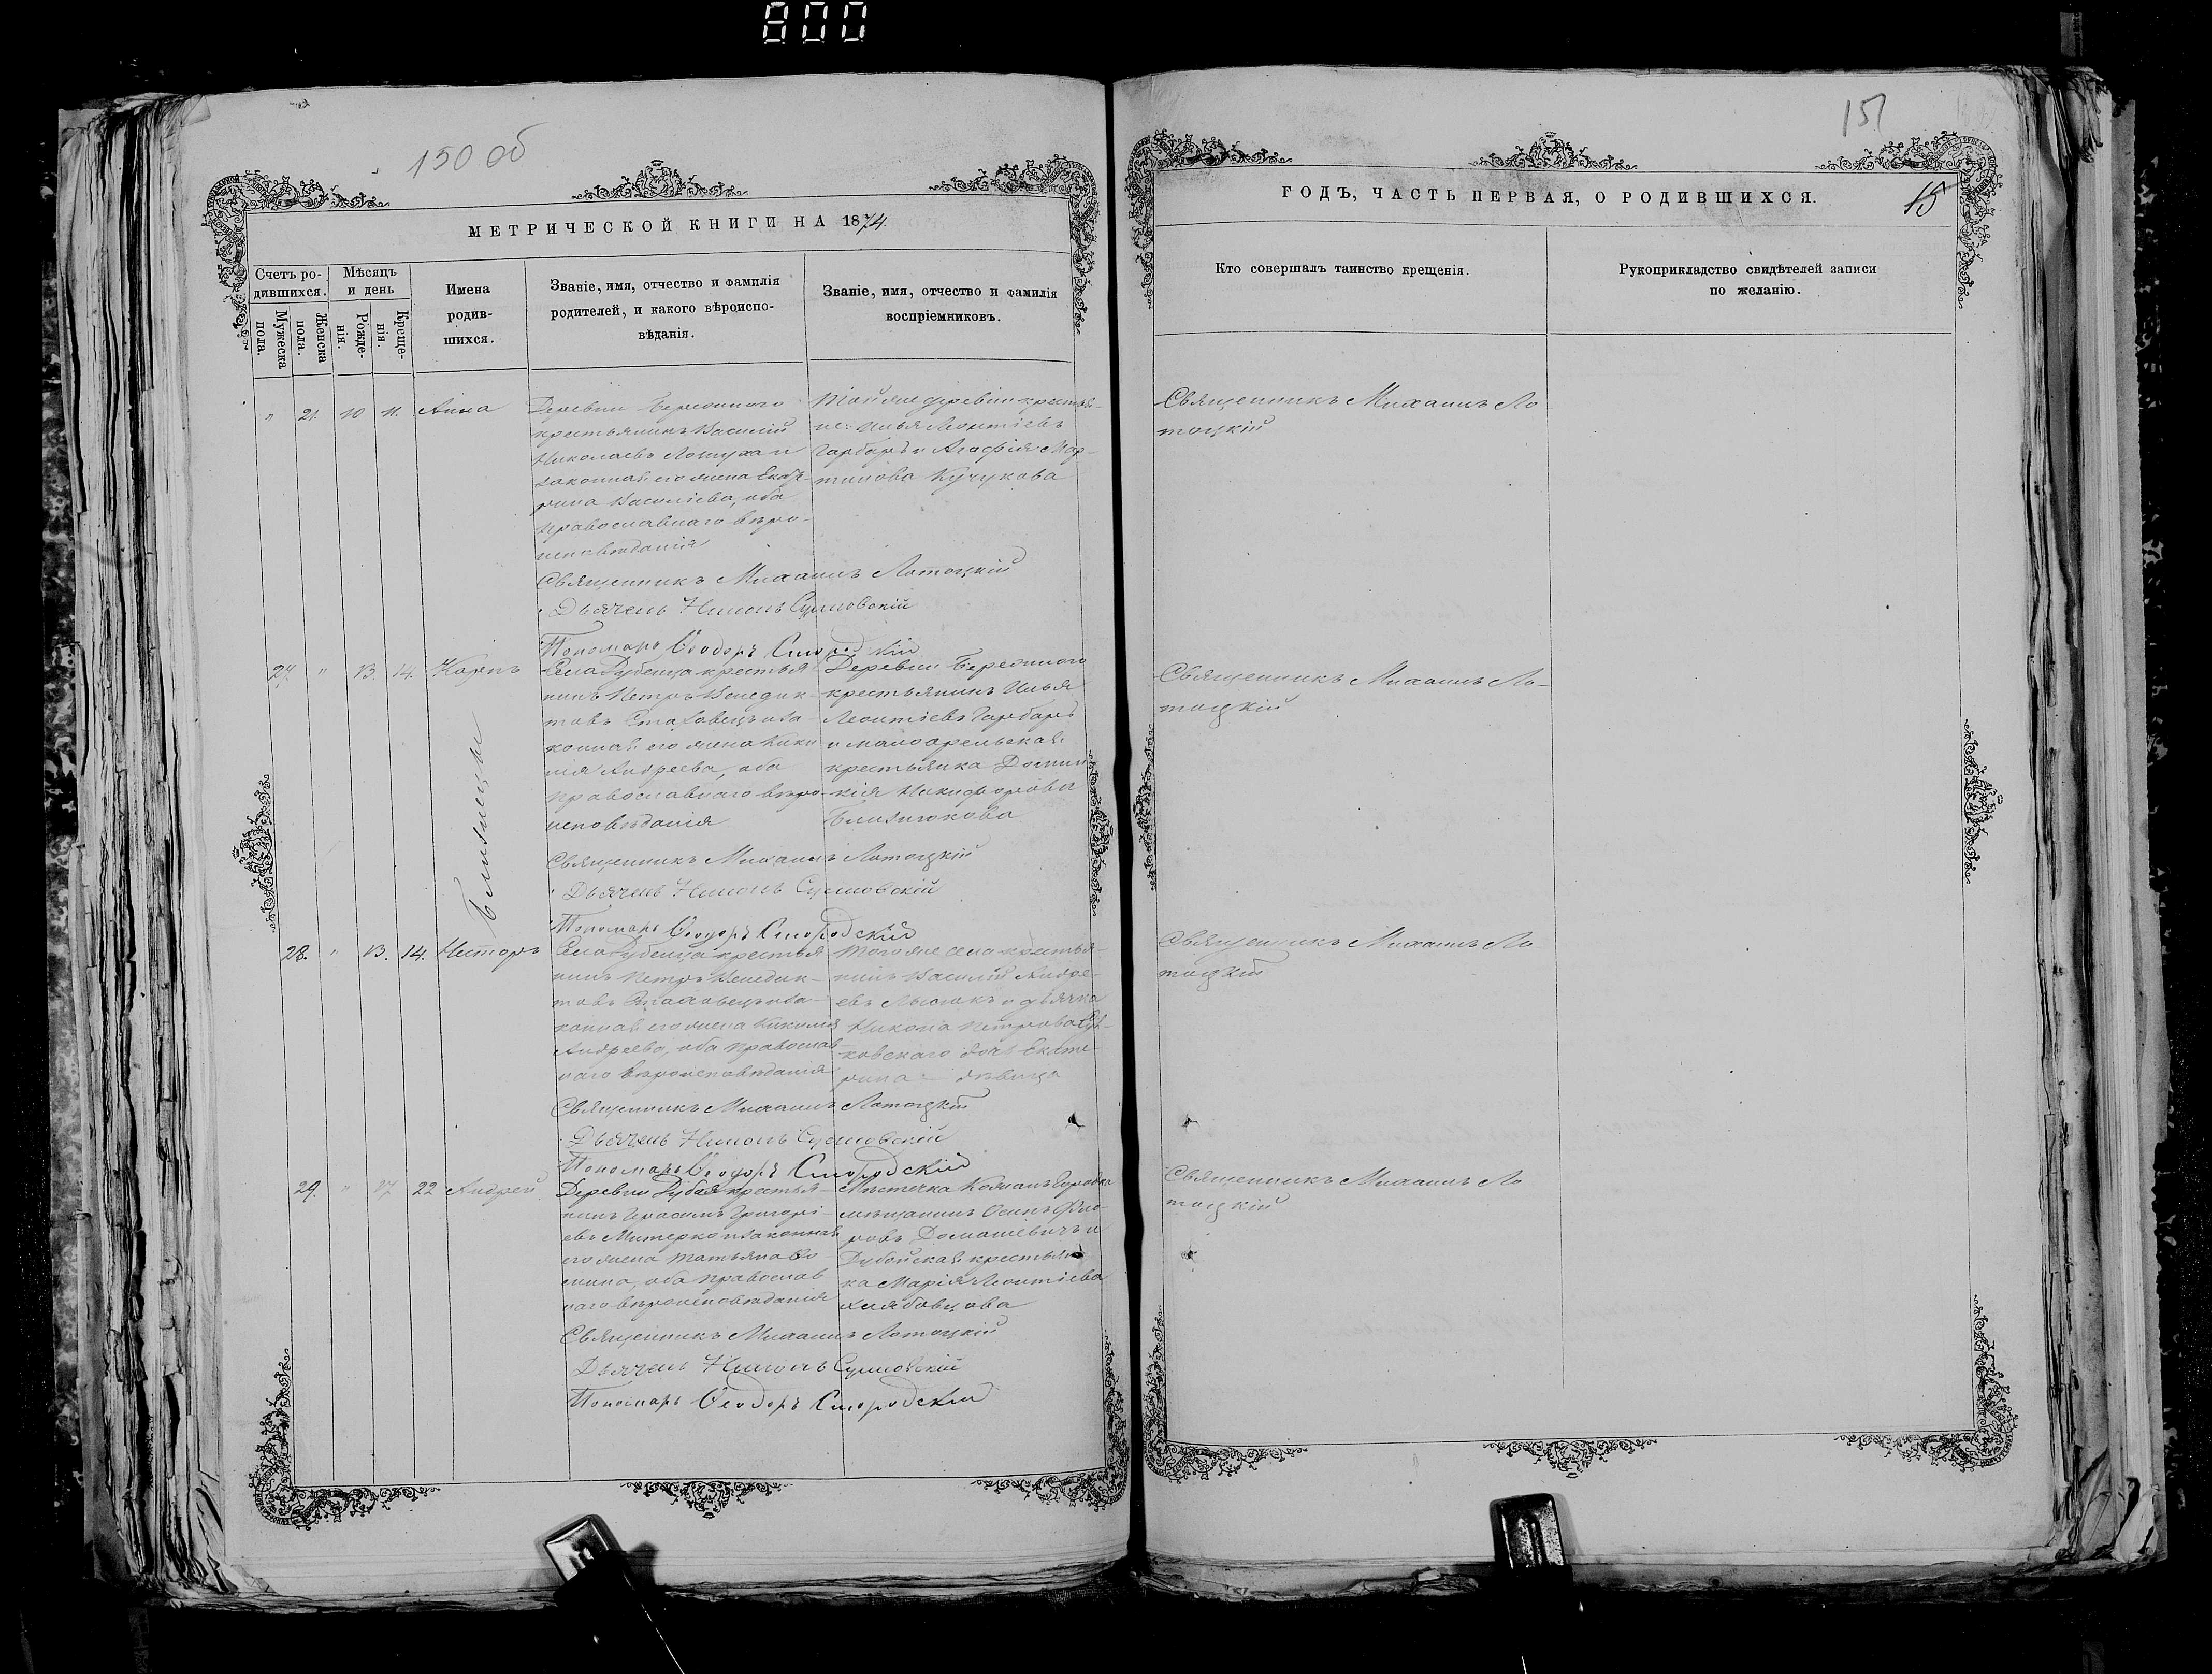 800
150 об
МЕТРИЧЕСКОЙ КНИГИ НА 1874.
Счетъ ро-
дившихся.
Мужеска
пола.
Женска
пола.
Мѣсяцъ
и день
Рожде-
нія.
Креще-
нія.
Имена
родив-
шихся.
Званіе, имя, отчество и фамилія
родителей, и какого вѣроиспо-
вѣданія.
Званіе, имя, отчество и фамилія
воспріемниковъ.
" 21. 10 11. Анна
Деревни
крестьянинъ Василій
Николаевъ и
законная его жена Екате-
рина Василіева, оба
православнаго вѣро-
исповѣданія
Той же деревни крестья-
не: Илья Леонтіевъ
Гарбаръ и Агафія Мар-
тинова Кучукова
Священникъ Михаилъ Лотоцкій
Дьячекъ
Пономарь Ѳеодоръ
27. " 13. 14. Карпъ
Близнецы
Села Дубенца крестья
нинъ Петръ Венедик-
товъ и за-
конная его жена Кики
лія Андреева, оба
православнаго вѣро-
исповѣданія
Деревни
крестьянинъ Илья
Леонтіевъ Гарбаръ
и
крестьянка Домни
кія Никифорова
Близнюкова
Священникъ Михаилъ Лотоцкій
Дьячекъ
Пономарь Ѳеодоръ
28. " 13. 14. Несторъ
Села Дубенца крестья
нинъ Петръ Венедик-
товъ и за-
конная его жена Кикилія
Андреева, оба православ-
наго вѣроисповѣданія
Того же села крестья-
нинъ Василій Андре-
евъ и дьячка
Никона Петрова
ковскаго дочь Екате-
рина - дѣвица
Священникъ Михаилъ Лотоцкій
Дьячекъ
Пономарь Ѳеодоръ
29. " 17 22 Андрей
Деревни Дубоя крестья-
нинъ Герасимъ Григорі-
евъ Митерко и законная
его жена Татьяна Ѳо
мина, оба православ
наго вѣроисповѣданія
Мѣстечка Кожанъ Городка
мѣщанинъ Осипъ Фло-
ровъ Домашевичъ и
Дубойская крестьян
ка Марія Леонтіева
Хлябовцова
Священникъ Михаилъ Лотоцкій
Дьячекъ
Пономарь Ѳеодоръ
151
15
ГОДЪ, ЧАСТЬ ПЕРВАЯ, О РОДИВШИХСЯ.
Кто совершалъ таинство крещенія.
Рукоприкладство свидѣтелей записи
по желанію.
Священникъ Михаилъ Ло
тоцкій
Священникъ Михаилъ Ло-
тоцкій
Священникъ Михаилъ Ло
тоцкій
Священникъ Михаилъ Ло
тоцкій